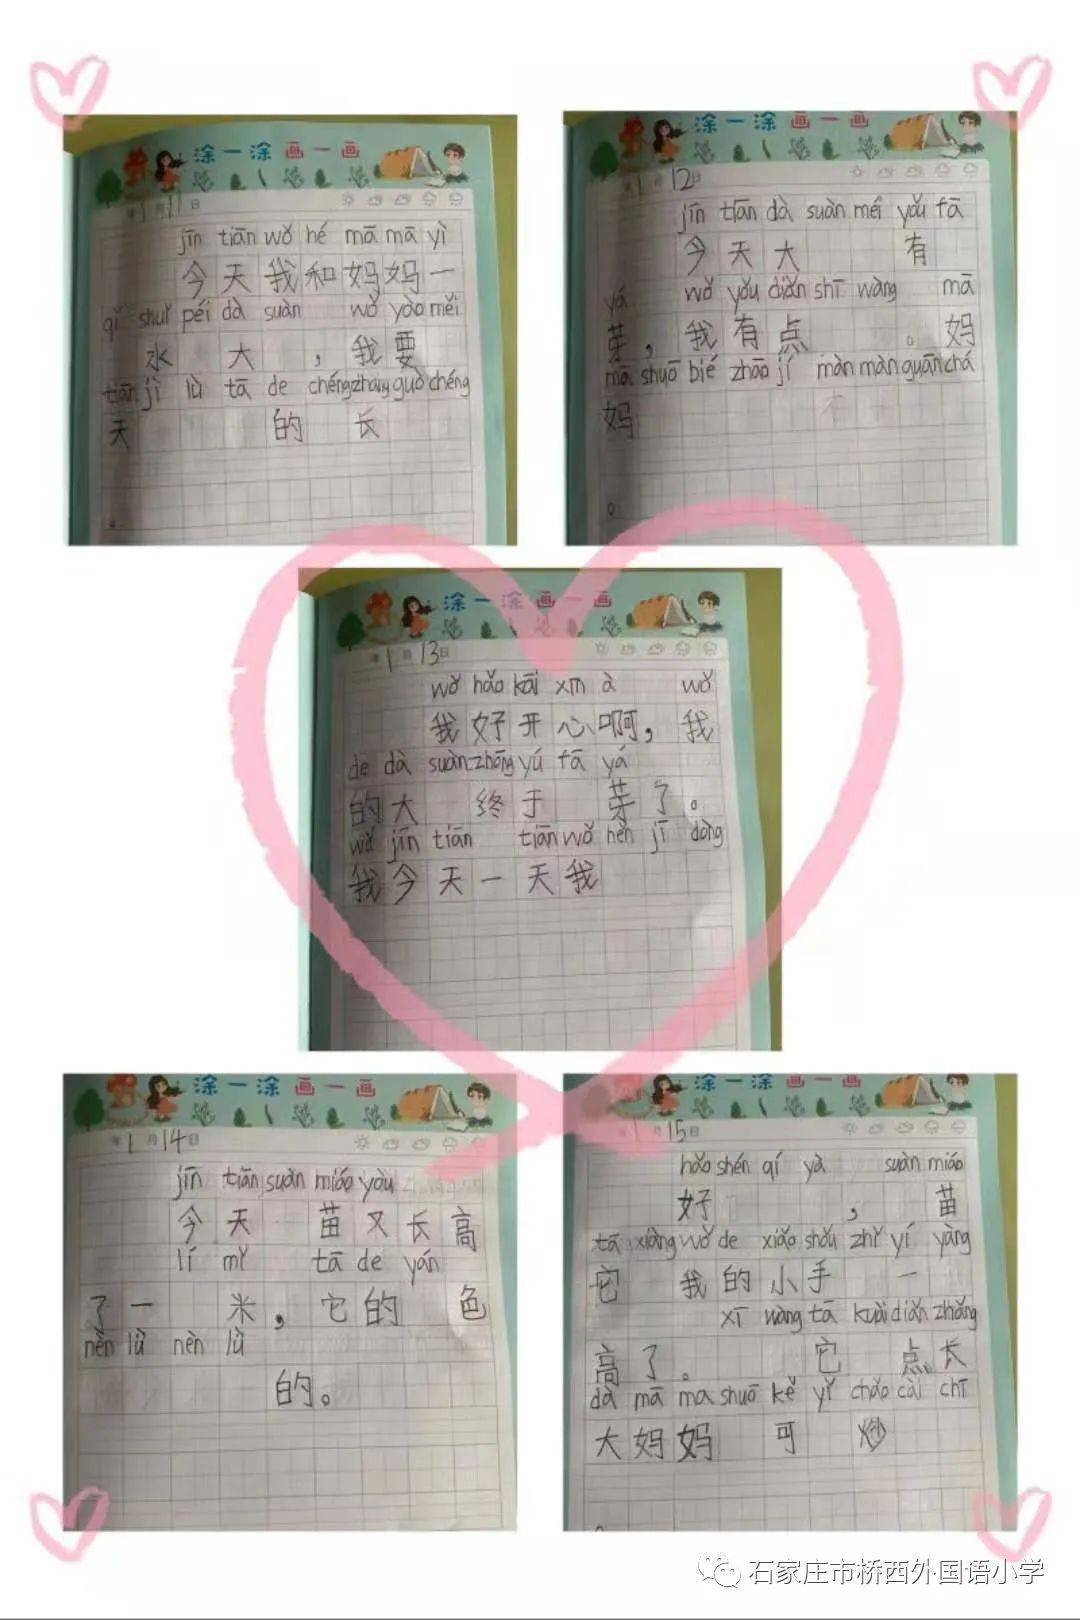 涂一涂画一画
年1月11日
jīn tiān wǒ hé mā mā yì
今天我和妈妈一
qǐ shuǐ péi dà suàn wǒ yào měi
水 大 ，我要
tiān jì lù tā de chéngzhǎng guò chéng
天 的 长
。
涂一涂画一画
年1月12日
jīn tiān dà suàn méi yǒu fā
今天大 有
yá wǒ yǒu diǎn shī wàng mā
芽，我有点 。妈
mā shuō bié zhāo jí màn màn guān chá
妈
。
涂一涂画一画
年1月13日
wǒ hǎo kāi xīn à wǒ
我好开心啊，我
de dà suàn zhōng yú fā yá
的大 终于 芽了。
wǒ jīn tiān tiān wǒ nèn jī dòng
我今天一天我
涂一涂画一画
年1月14日
jīn tiān suàn miáo yòu
今天 苗又长高
lí mǐ tā de yán
了一 米，它的 色
nèn lǜ nèn lǜ
的。
涂一涂画一画
年1月15日
hǎo shén qí yà suàn miáo
好 ， 苗
tā xiàng wǒ de xiǎo shǒu zhǐ yí yàng
它 我的小手 一
xī wàng tā kuài diǎn zhǎng
高了。 它 点长
dà mā ma shuō kě yǐ chǎo cài chī
大妈妈 可 炒
石家庄市桥西外国语小学